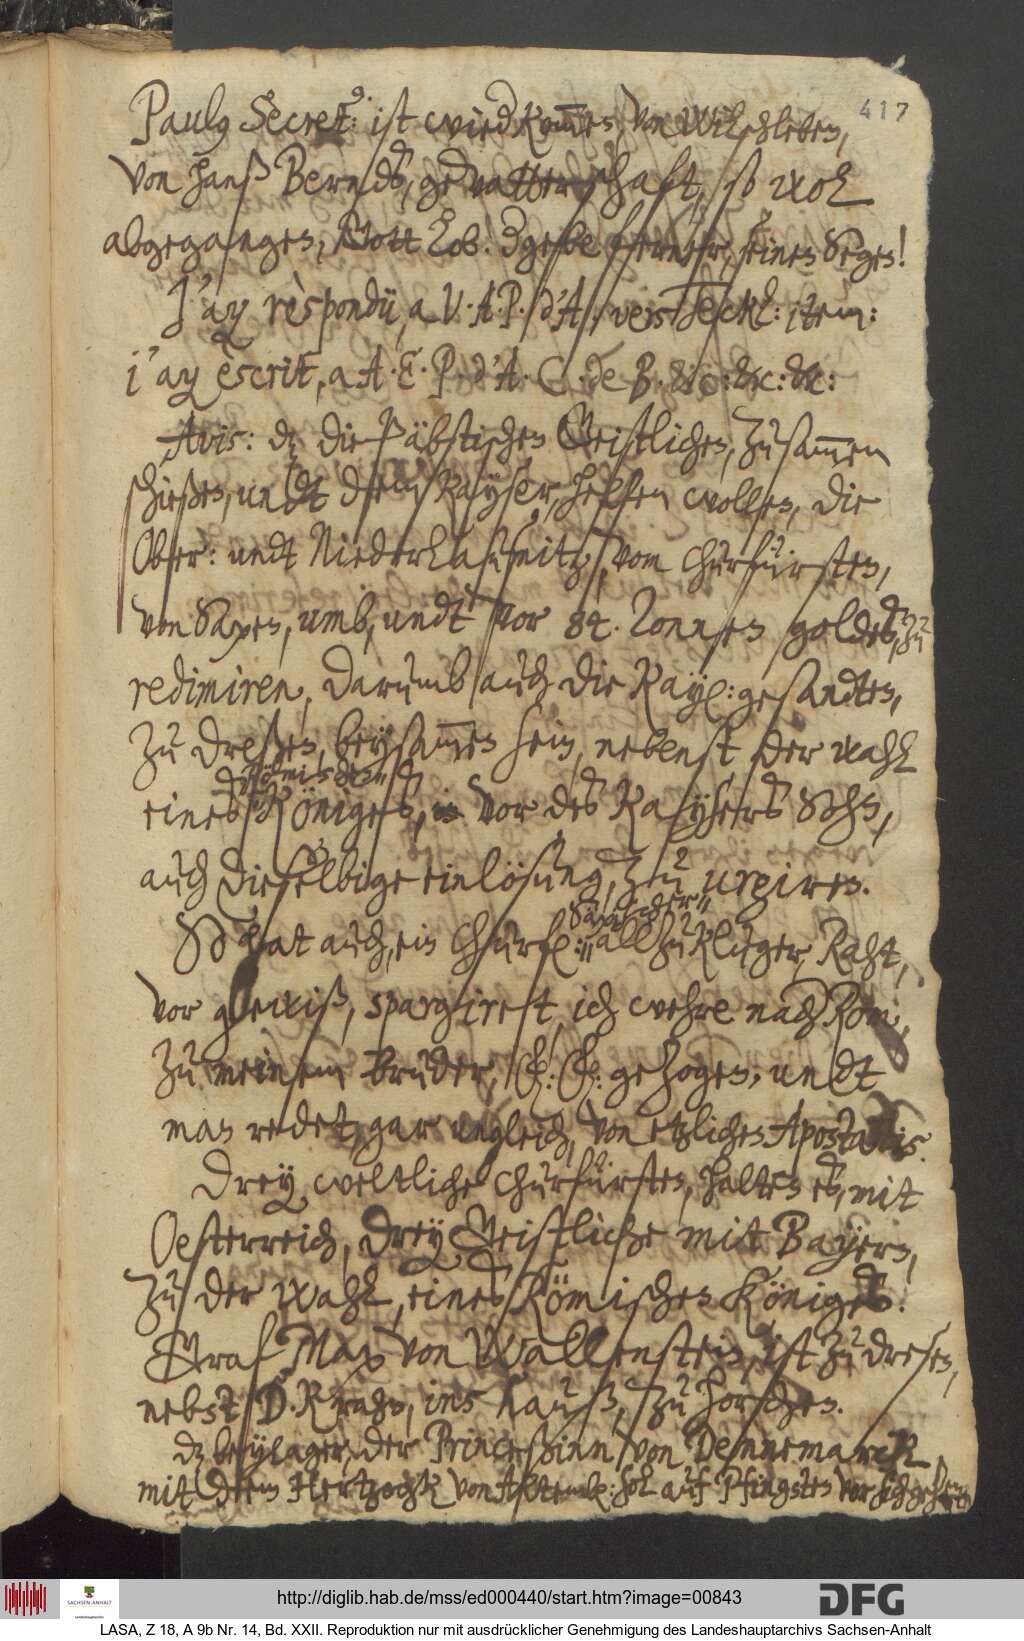 417
Pauly Secret: ist wiedkom̅en, von Wilschleben,
von Hanß Berndts, gevatterschaft, so wol
abgegangen, Gott lob. Dergebe ferner, seinen Segen!
J'ay respondü, a V. A. P. d'A, vers Teckl: item:
j'ay escrit, a A. E. P. d'A. C. de B. &c: &c: &c:
Avis: dz die Päbstischen Geistlichen, zusam̅en
schießen, undt dem Kayser, helfen wollen, die
Ober: undt Niederlaußnitz, vom Churfürsten,
von Saxen, umb, undt vor 84. Tonnen goldes, zu
redimiren, darumb auch die Kayl: gesandten,
zu Dreßen, beysam̅en sein, nebenst der wahl
eines Römischen Königes, vor des Kaysers Sohn,
auch dieselbige einlösung, zu urgiren.
So hat auch, ein Churfl: Säxischer allzukluger, Raht,
vor gewiß, spargiret, ich wehre nach Rom,
zu meinem bruder, gezogen, undt
man redet, gar ungleich, von etzlichen Apostatis.
Drey weltliche Churfürsten, halten es, mit
Oesterreich, drey Geistliche mit Bayern,
zu der wahl, eines Römischen Königes.
Graf Max von Wallenstein, ist zu Dresen,
nebst D. Krahn, ins hauß, zu horchen.
dz beylager, der Princeßinn von Dennemarck
mit dem Hertzogk von soll auf Pfingsten vor sich gehen
http://diglib.hab.de/mss/ed000440/start.htm?image=00843
DFG
SACHSEN-ANHALT
LASA, Z 18, A 9b Nr. 14, Bd. XXII. Reproduktion nur mit ausdrücklicher Genehmigung des Landeshauptarchivs Sachsen-Anhalt